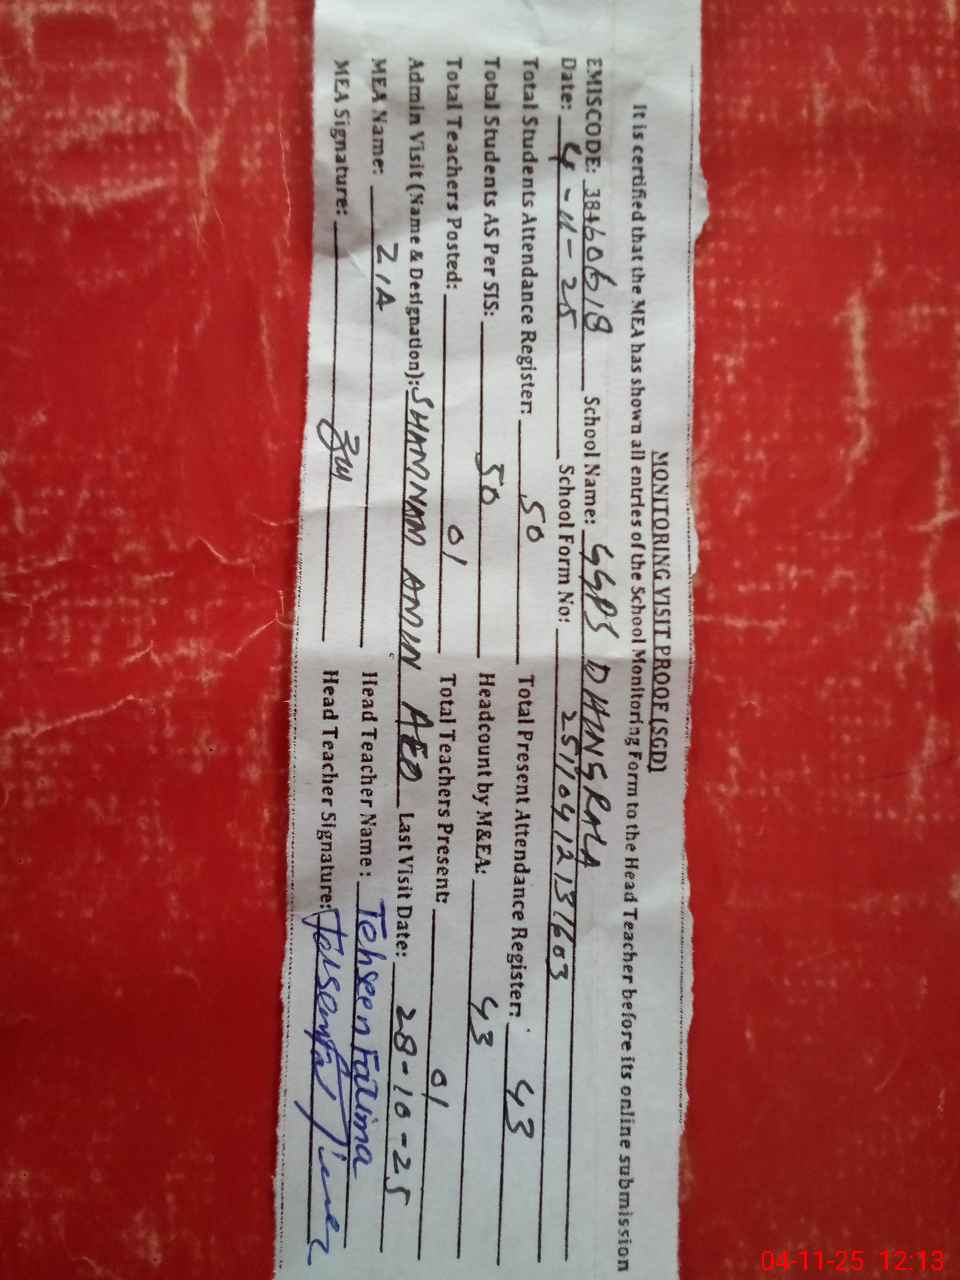 MONITORING VISIT PROOF (SGD)
It is certified that the MEA has shown all entries of the School Monitoring Form to the Head Teacher before its online submission
EMISCODE: 38460618 School Name: GGPS DHINGRALA
Date: 4-11-25 School Form No: 25110412131603
Total Students Attendance Register: 50 Total Present Attendance Register: 43
Total Students AS Per SIS: 50 Headcount by M&EA: 43
Total Teachers Posted: 01 Total Teachers Present: 01
Admin Visit (Name & Designation): AMIN AEO Last Visit Date: 28-10-25
MEA Name: ZIA Head Teacher Name: Tehseen Fatima
MEA Signature: Head Teacher Signature:
04-11-25 12:13